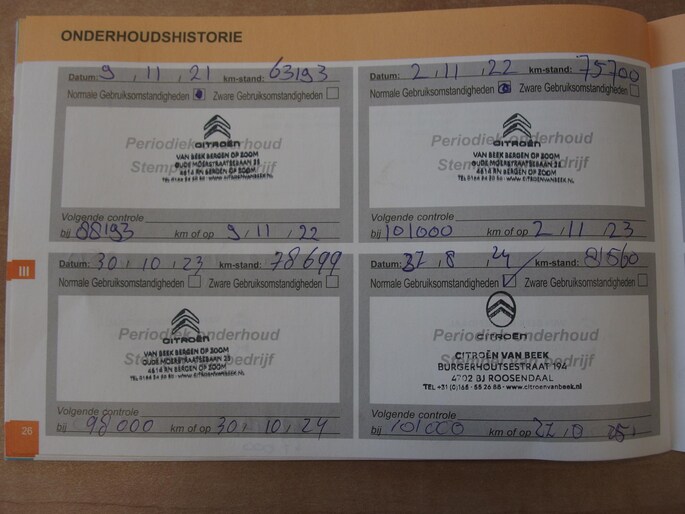 ONDERHOUDSHISTORIE
Datum: 9 , 11 , 21 km-stand: 63193
Normale Gebruiksomstandigheden Zware Gebruiksomstandigheden
Periodiek onderhoud
CITROËN
VAN BEEK BERGEN OP ZOOM
OUDE MOERSTRAATSEBAAN 25
4614 RN BERGEN OP ZOOM
WWW.CITROENVANBEEK.NL
Volgende controle
bij 88193 km of op 9 , 11 , 22
Datum: 2 , 11 , 22 km-stand: 75700
Normale Gebruiksomstandigheden Zware Gebruiksomstandigheden
Periodiek onderhoud
CITROËN
VAN BEEK BERGEN OP ZOOM
OUDE MOERSTRAATSEBAAN 25
4614 RN BERGEN OP ZOOM
WWW.CITROENVANBEEK.NL
Volgende controle
bij 101000 km of op 2 , 11 , 23
III
Datum: 30 , 10 , 23 km-stand: 78699
Normale Gebruiksomstandigheden Zware Gebruiksomstandigheden
Periodiek onderhoud
CITROËN
VAN BEEK BERGEN OP ZOOM
OUDE MOERSTRAATSEBAAN 25
4614 RN BERGEN OP ZOOM
WWW.CITROENVANBEEK.NL
Volgende controle
bij 98000 km of op 30 , 10 , 24
Datum: , 8 , 24 km-stand: 81560
Normale Gebruiksomstandigheden Zware Gebruiksomstandigheden
Periodiek onderhoud
CITROËN
CITROËN VAN BEEK
BURGERHOUTSESTRAAT 194
4702 BJ ROOSENDAAL
TEL +31 (0)165 - 55 26 88 - www.citroenvanbeek.nl
Volgende controle
bij 101000 km of op
26